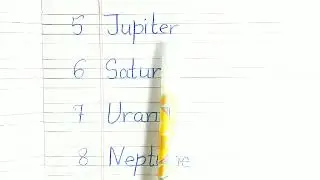 5 Jupiter
6 Satur
7 Uran
8 Neptune